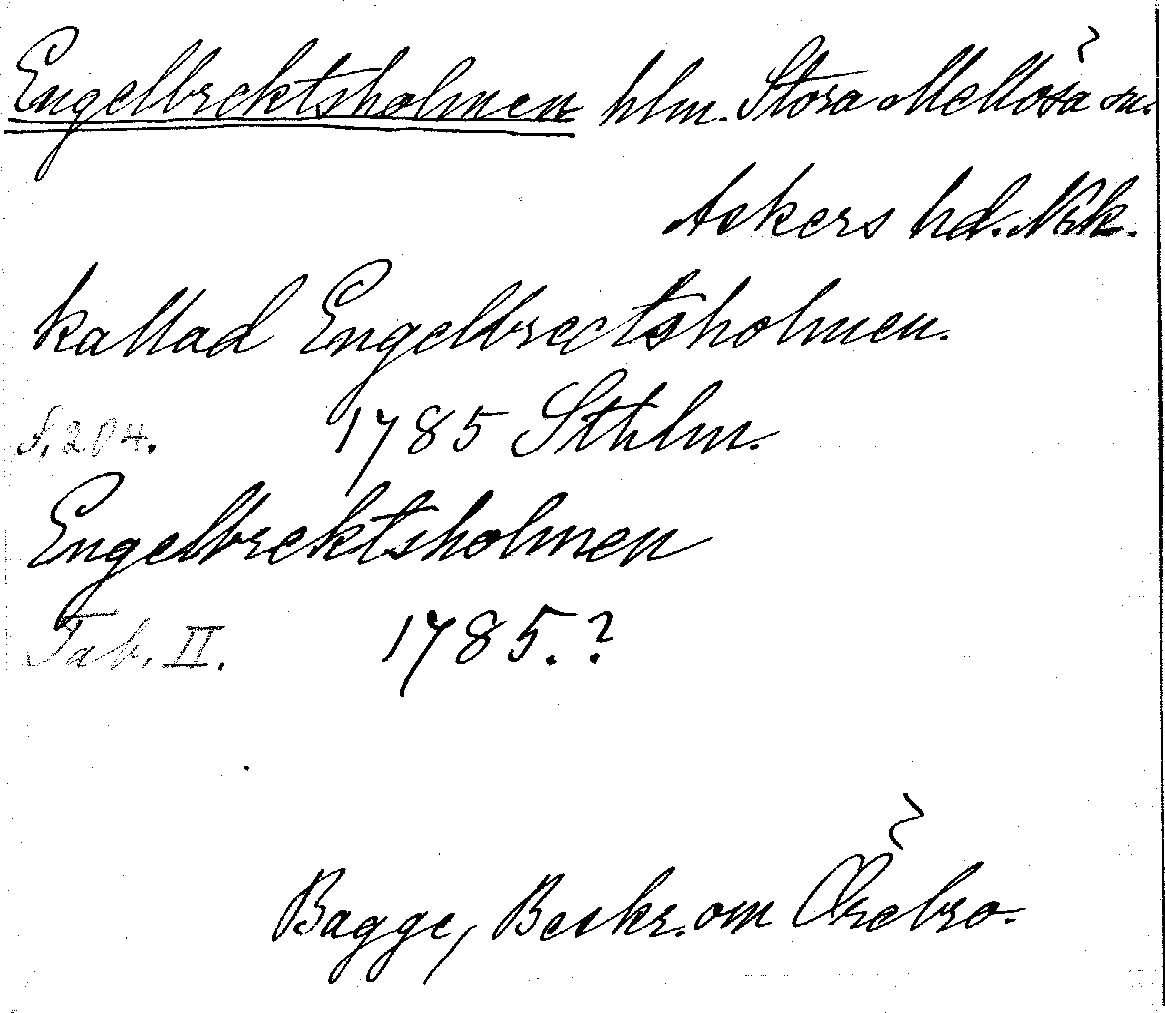 Engelbrektsholmen hlm. Stora Mellösa sn.
Askers hd. Nrk.
kallad Engelbrectsholmen.
S. 204. 1785 Sthlm.
Engelbrektsholmen
Tab. II. 1785.?
Bagge, Beskr. om Örebro.